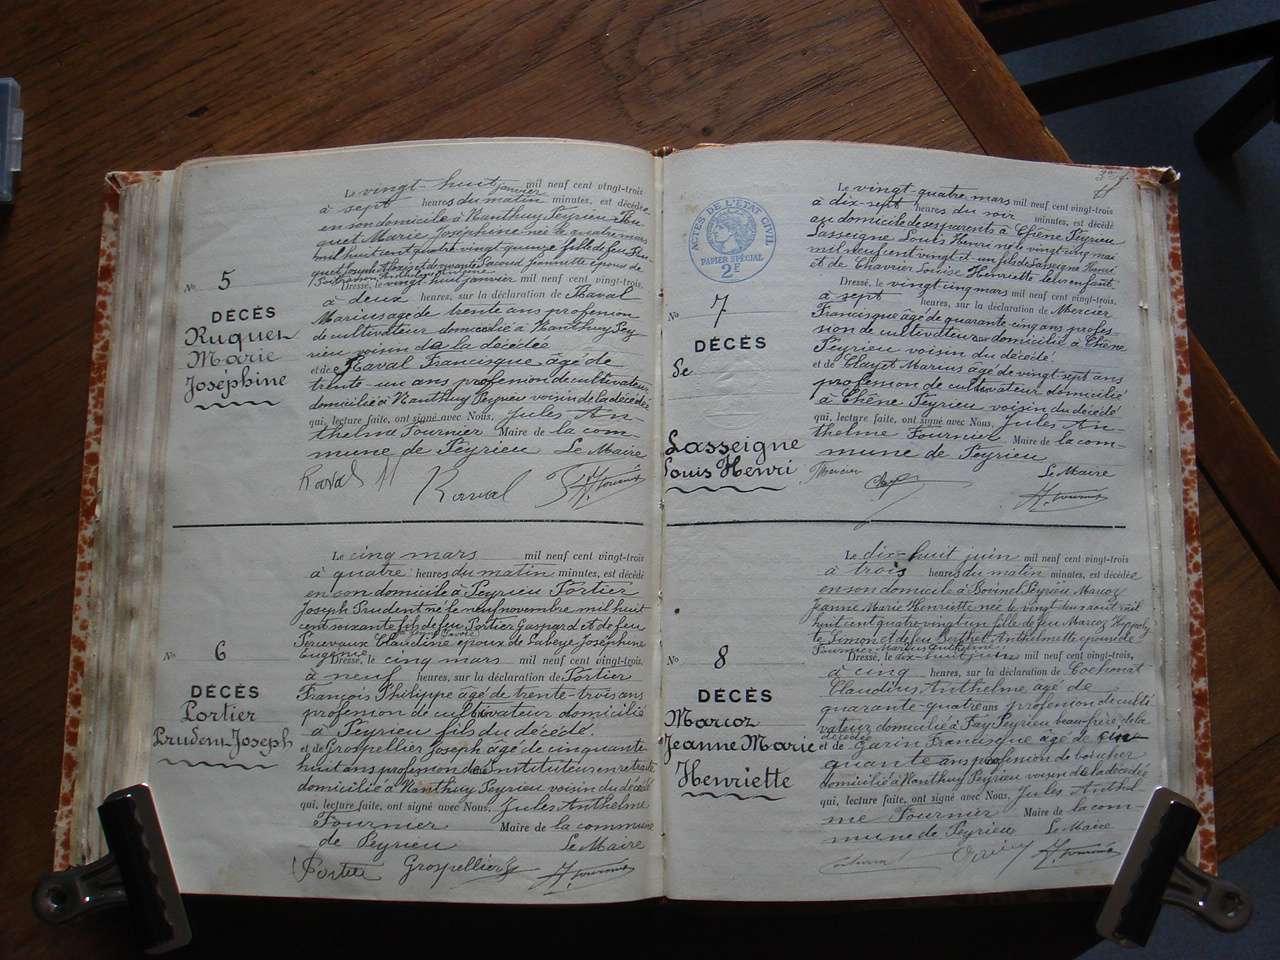 Le vingt-huit janvier mil neuf cent vingt-trois
à sept heures du matin minutes, est décédée
en son domicile à Nanthuy Peyrieu Ru
quet Marie Joséphine née le quatre mars
mil huit cent quatre vingt quinze fille de feu Ru
quet Joseph et de vivante Jeannette épouse de
Dressé, le vingt huit janvier mil neuf cent vingt-trois,
à deux heures, sur la déclaration de Raval
Marius agé de trente ans profession
de cultivateur domicilié à Nanthuy Pey
rieu voisin de la décédée
et de Raval Francisque âgé de
trente-un ans profession de cultivateur
domicilié à Nanthuy Peyrieu voisin de la décédée
qui, lecture faite, ont signé avec Nous, Jules An
thelme Fournier Maire de la com-
mune de Peyrieu Le Maire
Raval M Raval Fournier
No 5
DÉCÈS
Ruquet
Marie
Joséphine
Le cinq mars mil neuf cent vingt-trois
à quatre heures du matin minutes, est décédé
en son domicile à Peyrieu Portier
Joseph Prudent né le neuf novembre mil huit
cent soixante fils de feu Portier Gaspard et de feu
Claudine époux de Labeye Joséphine
Eugénie
Dressé, le cinq mars mil neuf cent vingt-trois,
à neuf heures, sur la déclaration de Portier
François Philippe agé de trente-trois ans
profession de cultivateur domicilié
à Peyrieu fils du décédé.
et de Grospellier Joseph agé de cinquante
huit ans profession de Instituteur en retraite
domicilié à Nanthuy Peyrieu voisin du décédé
qui, lecture faite, ont signé avec Nous, Jules Anthelme
Fournier Maire de la commune
de Peyrieu Le Maire
Portier Grospellier Fournier
No 6
DÉCÈS
Portier
Prudent Joseph
ACTES DE L'ÉTAT CIVIL
PAPIER SPÉCIAL
2F
Le vingt-quatre mars mil neuf cent vingt-trois
à dix-sept heures du soir minutes, est décédé
au domicile de ses parents à Chêne Peyrieu
Lasseigne Louis Henri né le vingt cinq mai
mil neuf cent vingt et un fils de Lasseigne Henri
et de Chavrier Louise Henriette leur enfant.
Dressé, le vingt cinq mars mil neuf cent vingt-trois,
à sept heures, sur la déclaration de Mercier
Francisque âgé de quarante cinq ans profes
sion de cultivateur domicilié à Chêne
Peyrieu voisin du décédé
et de Clayet Marius agé de vingt sept ans
profession de cultivateur domicilié
à Chêne Peyrieu voisin du décédé
qui, lecture faite, ont signé avec Nous, Jules An-
thelme Fournier Maire de la com-
mune de Peyrieu
Le Maire
Mercier Fournier
No 7
DÉCÈS
De
Lasseigne
Louis Henri
Le dix-huit juin mil neuf cent vingt-trois
à trois heures du matin minutes, est décédée
en son domicile à Peyrieu Marcoz
Jeanne Marie Henriette née le vingt août mil
huit cent quatre vingt un fille de feu Marcoz Hippoly
te Simon et de feu Berthet Anthelmette épouse de
Fournier Marius
Dressé, le dix-huit juin mil neuf cent vingt-trois,
à cinq heures, sur la déclaration de Cochonat
Claudius Anthelme agé de
quarante-quatre ans profession de culti
vateur domicilié à Fay Peyrieu beau-frère de la
décédée
et de Garin Francisque âgé de cin
quante ans profession de boucher
domicilié à Nanthuy Peyrieu voisin de la décédée
qui, lecture faite, ont signé avec Nous, Jules Anthel
me Fournier Maire de la com-
mune de Peyrieu Le Maire
Garin Fournier
No 8
DÉCÈS
Marcoz
Jeanne Marie
Henriette